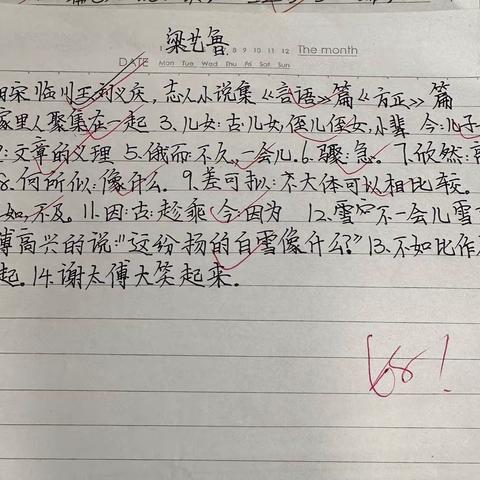 梁艺鲁
1 8 9 10 11 12 The month
DATE Mon Tue Wed Thu Fri Sat Sun
宋临川王刘义庆，志人小说集《言语》篇《方正》篇
家里人聚集在一起 3、儿女:古:儿女,侄儿侄女,小辈 今:儿子
:文章的义理 5.俄而:不久,一会儿.6.骤:急。7.欣然:高
8.何所似:像什么. 9.差可拟:不大体可以相比较.
如,不及. 11.因:古:趁,乘 今:因为 12.雪 不一会儿雪
傅高兴的说:"这纷扬的白雪像什么?"13.不如比作
起.14.谢太傅大笑起来.